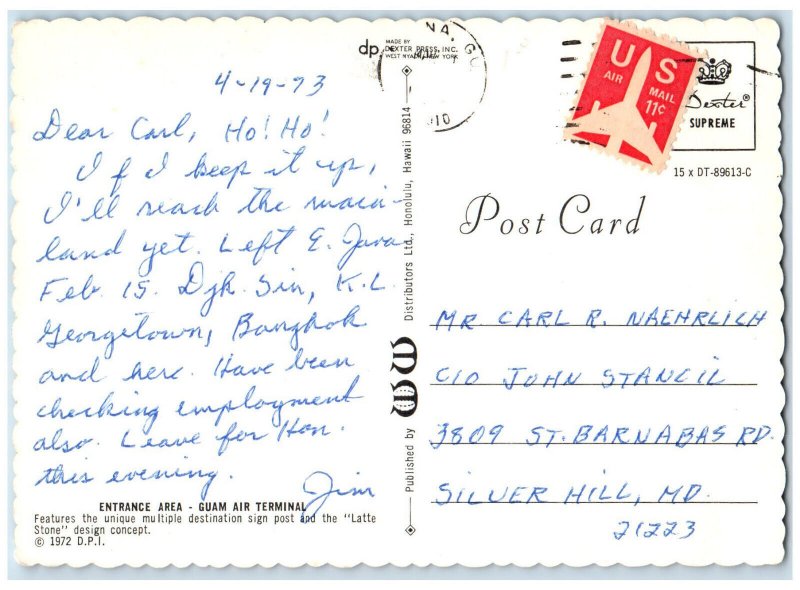 4-19-73
Dear Carl, Ho! Ho!
If I keep it up,
I'll reach the main-
land yet. Left E. Java
Feb. 15. Djk. Sin, K.L.
Georgetown, Bangkok
and here. Have been
checking employment
also. Leave for Hon.
this evening.
Jim
ENTRANCE AREA - GUAM AIR TERMINAL
Features the unique multiple destination sign post and the "Latte
Stone" design concept.
© 1972 D.P.I.
dp
MADE BY
DEXTER PRESS, INC.
WEST NYACK, NEW YORK
Published by WW Distributors Ltd., Honolulu, Hawaii 96814
NA, GU
910
US
AIR
MAIL
11¢
Dexter®
SUPREME
15 x DT-89613-C
Post Card
MR. CARL R. NAEHRLICH
C/O JOHN STANCIL
3809 ST. BARNABAS RD.
SILVER HILL, MD.
21223